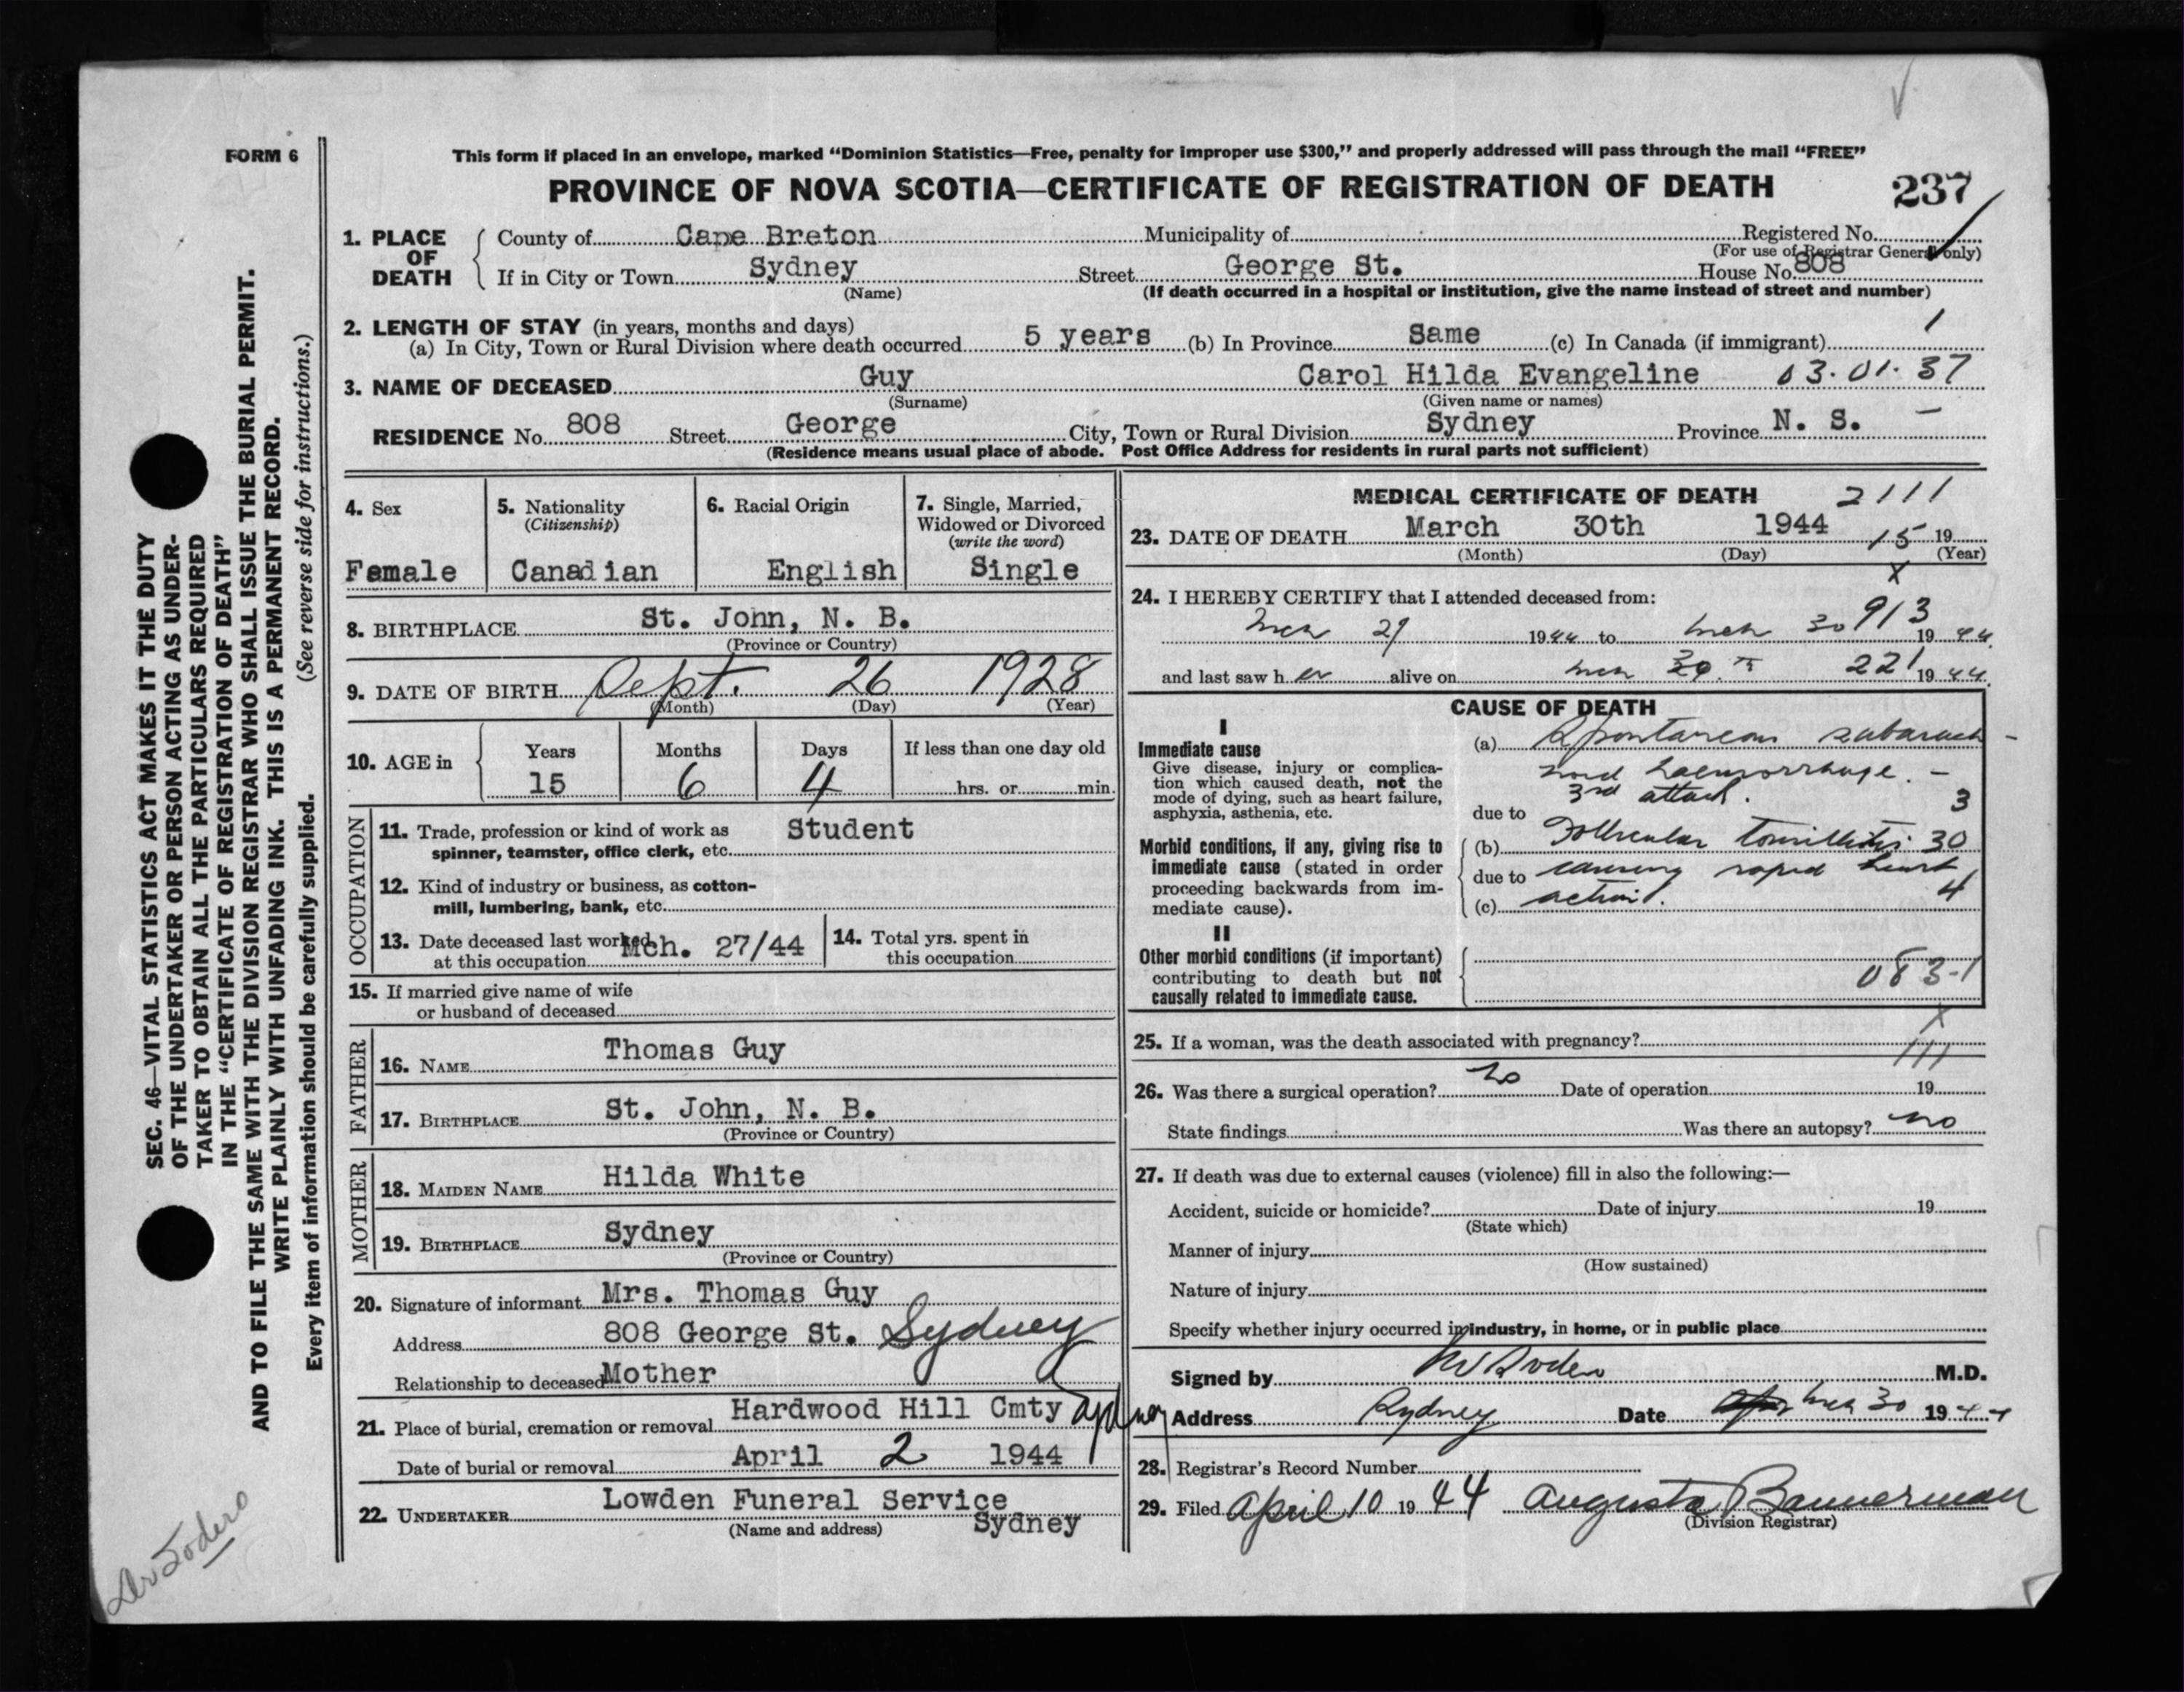 FORM 6
This form if placed in an envelope, marked “Dominion Statistics—Free, penalty for improper use $300,” and properly addressed will pass through the mail “FREE”
PROVINCE OF NOVA SCOTIA—CERTIFICATE OF REGISTRATION OF DEATH 237
1. PLACE OF DEATH County of Cape Breton Municipality of Registered No.
(For use of Registrar General only)
If in City or Town Sydney Street George St. House No. 808
(Name) (If death occurred in a hospital or institution, give the name instead of street and number)
2. LENGTH OF STAY (in years, months and days)
(a) In City, Town or Rural Division where death occurred 5 years (b) In Province Same (c) In Canada (if immigrant) 1
3. NAME OF DECEASED Guy Carol Hilda Evangeline 03·01·37
(Surname) (Given name or names)
RESIDENCE No. 808 Street George City, Town or Rural Division Sydney Province N. S. –
(Residence means usual place of abode. Post Office Address for residents in rural parts not sufficient)
4. Sex
Female
5. Nationality
(Citizenship)
Canadian
6. Racial Origin
English
7. Single, Married,
Widowed or Divorced
(write the word)
Single
8. BIRTHPLACE St. John, N. B.
(Province or Country)
9. DATE OF BIRTH Sept. 26 1928
(Month) (Day) (Year)
10. AGE in
Years Months Days If less than one day old
15 6 4 hrs. or min.
OCCUPATION
11. Trade, profession or kind of work as
spinner, teamster, office clerk, etc. Student
12. Kind of industry or business, as cotton-
mill, lumbering, bank, etc.
13. Date deceased last worked
at this occupation Mch. 27/44
14. Total yrs. spent in
this occupation
15. If married give name of wife
or husband of deceased
FATHER
16. NAME Thomas Guy
17. BIRTHPLACE St. John, N. B.
(Province or Country)
MOTHER
18. MAIDEN NAME Hilda White
19. BIRTHPLACE Sydney
(Province or Country)
20. Signature of informant Mrs. Thomas Guy
Address 808 George St. Sydney
Relationship to deceased Mother
21. Place of burial, cremation or removal Hardwood Hill Cmty Sydney
Date of burial or removal April 2 1944
22. UNDERTAKER Lowden Funeral Service
(Name and address) Sydney
MEDICAL CERTIFICATE OF DEATH 2111
23. DATE OF DEATH March 30th 1944 15 19
(Month) (Day) (Year)
x
24. I HEREBY CERTIFY that I attended deceased from:
Mch 29 1944 to Mch 30 913 1944
and last saw h er alive on Mch 30th 221 1944
CAUSE OF DEATH
I
Immediate cause
Give disease, injury or complica-
tion which caused death, not the
mode of dying, such as heart failure,
asphyxia, asthenia, etc.
(a) Spontaneous subarach-
noid haemorrhage. –
3rd attack. 3
due to
Morbid conditions, if any, giving rise to
immediate cause (stated in order
proceeding backwards from im-
mediate cause).
(b) Follicular tonsillitis 30
due to causing rapid heart
(c) action. 4
II
Other morbid conditions (if important)
contributing to death but not
causally related to immediate cause.
083-1
x
25. If a woman, was the death associated with pregnancy?
111
26. Was there a surgical operation? no Date of operation 19
State findings Was there an autopsy? no
27. If death was due to external causes (violence) fill in also the following:—
Accident, suicide or homicide? Date of injury 19
(State which)
Manner of injury
(How sustained)
Nature of injury
Specify whether injury occurred in industry, in home, or in public place
Signed by M.D.
Address Sydney Date Mch 30 1944
28. Registrar's Record Number
29. Filed April 10 1944 Augusta Bannerman
(Division Registrar)
SEC. 46—VITAL STATISTICS ACT MAKES IT THE DUTY
OF THE UNDERTAKER OR PERSON ACTING AS UNDER-
TAKER TO OBTAIN ALL THE PARTICULARS REQUIRED
IN THE “CERTIFICATE OF REGISTRATION OF DEATH”
AND TO FILE THE SAME WITH THE DIVISION REGISTRAR WHO SHALL ISSUE THE BURIAL PERMIT.
WRITE PLAINLY WITH UNFADING INK. THIS IS A PERMANENT RECORD.
Every item of information should be carefully supplied. (See reverse side for instructions.)
Dr Sodero